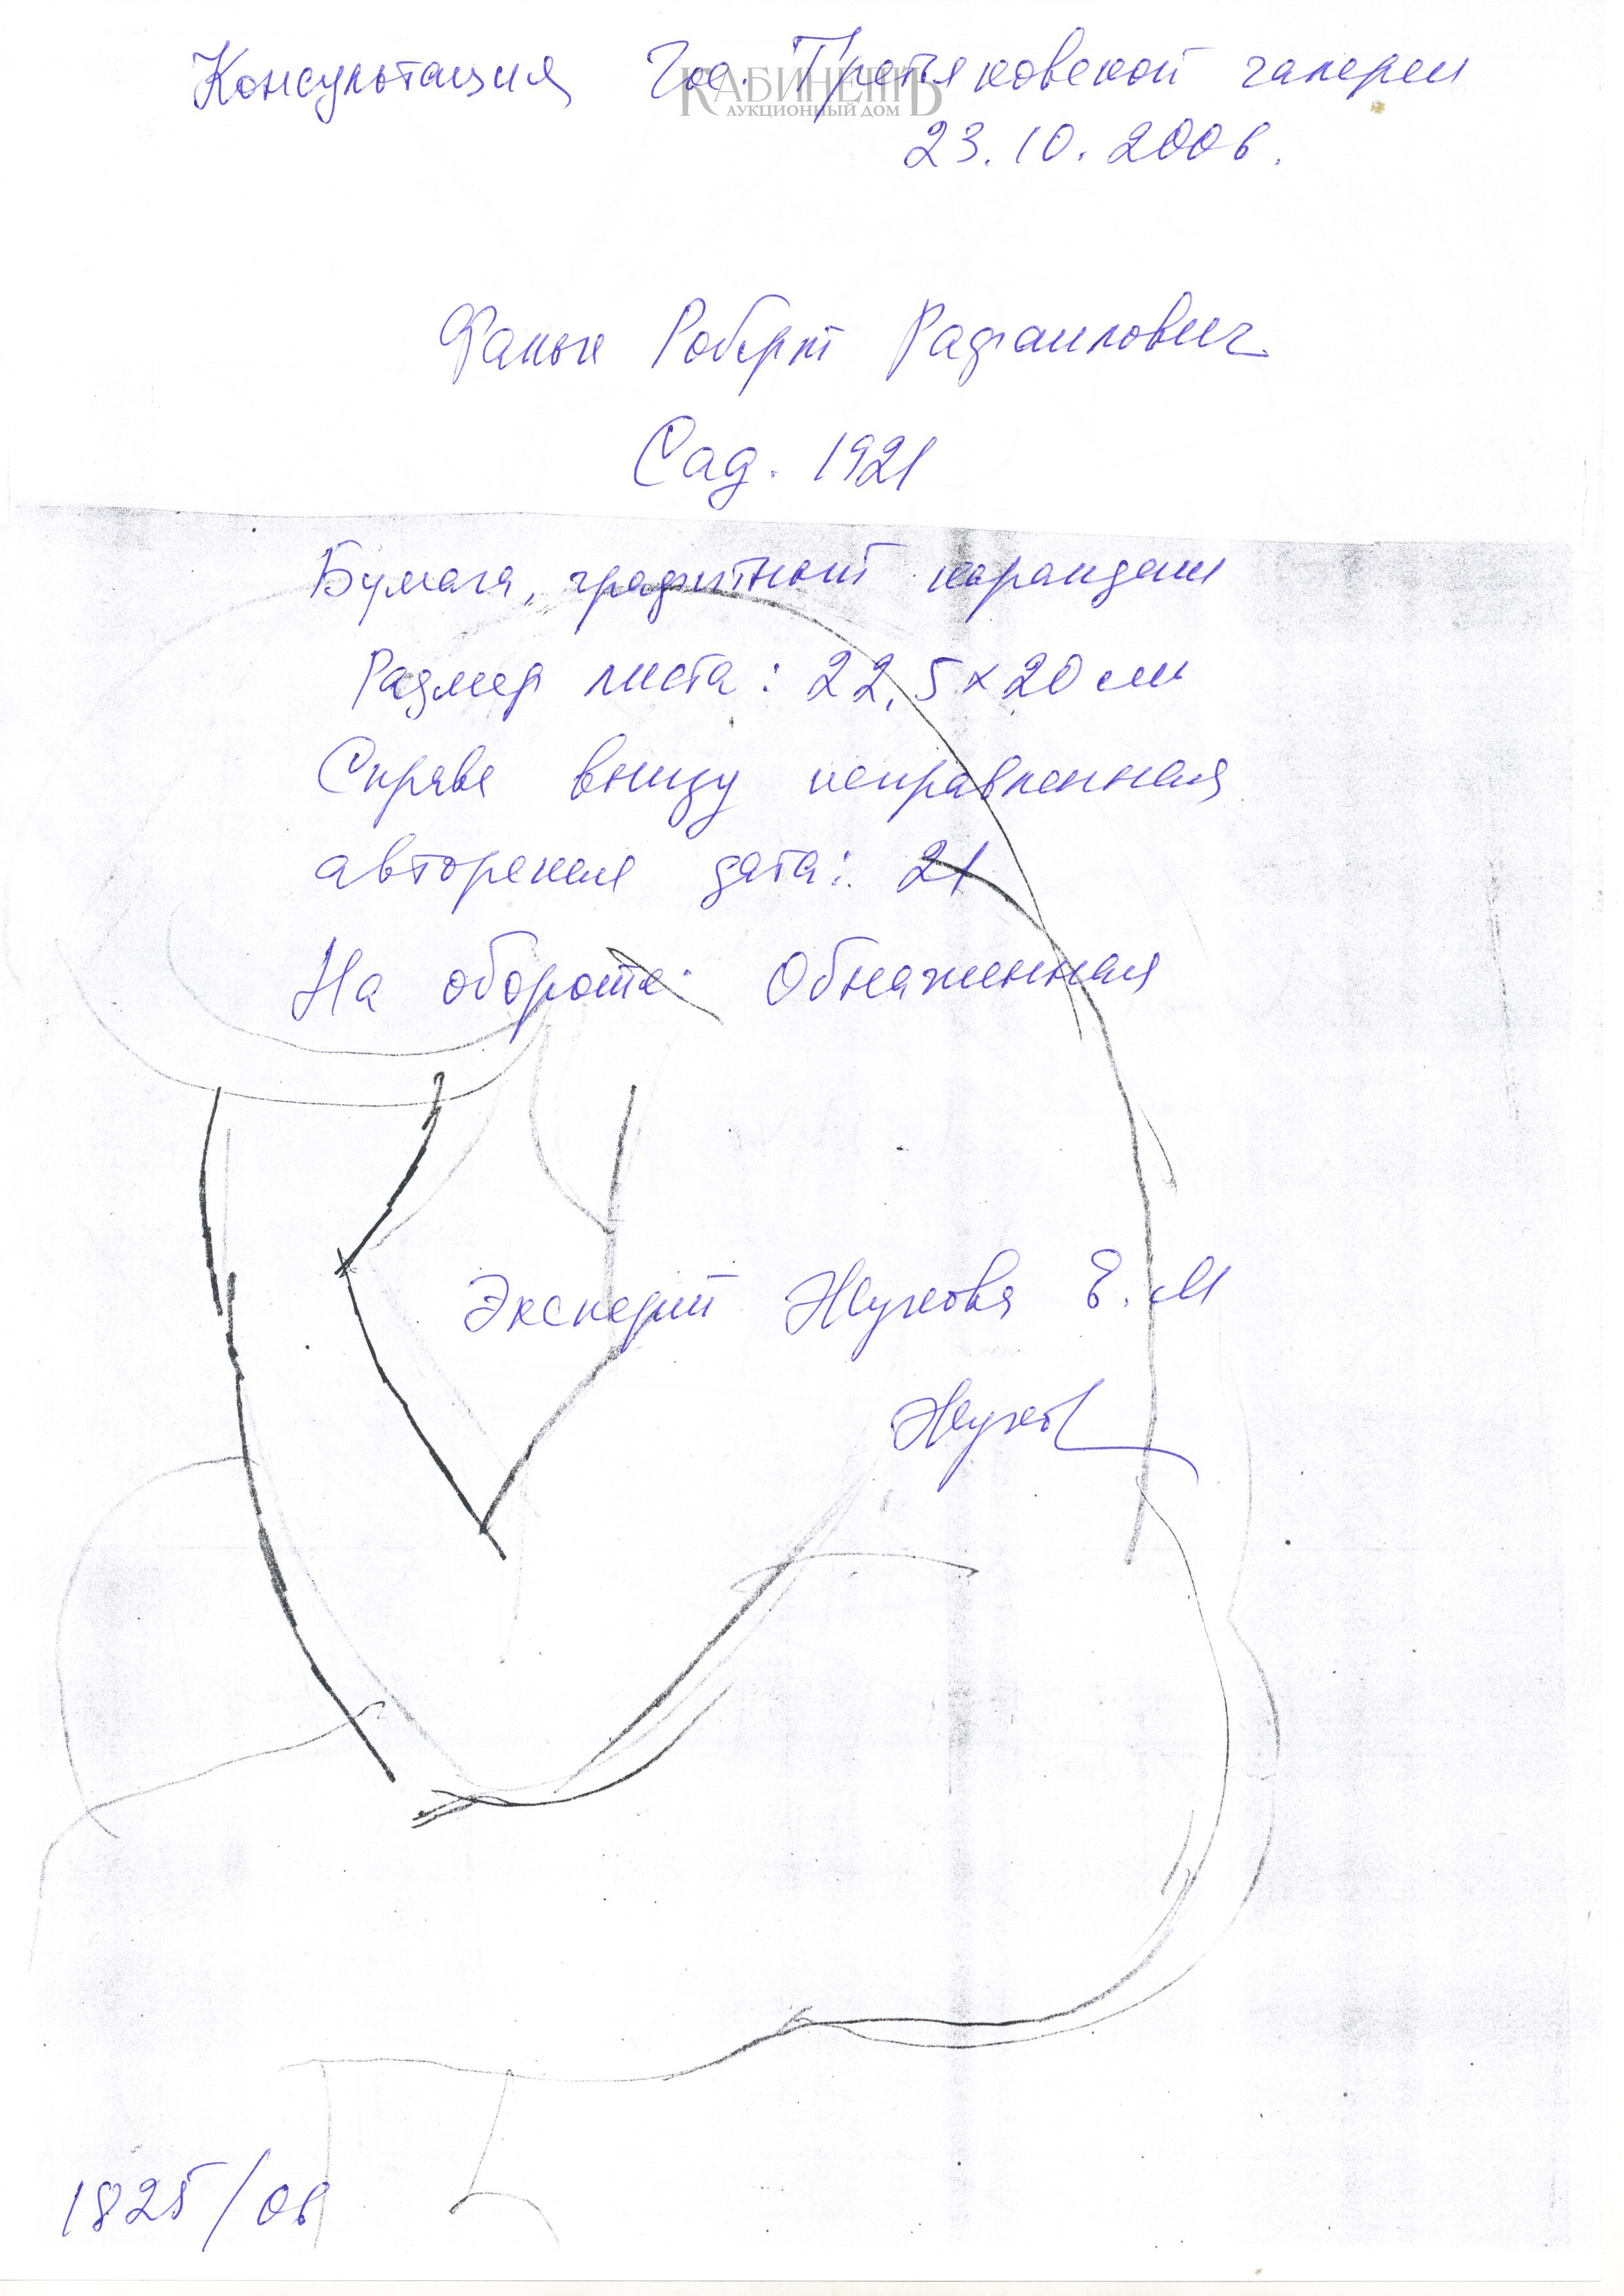 Консультация Гос. Третьяковской галереи
КАБИНЕТЪ
АУКЦИОННЫЙ ДОМ
23.10.2006.
Фальк Роберт Рафаилович
Сад. 1921
Бумага, графитный карандаш
Размер листа: 22,5 x 20 см
Справа внизу исправленная
авторская дата: 21
На обороте: Обнаженная
Эксперт Жукова Е.М
Жуков
1825/06